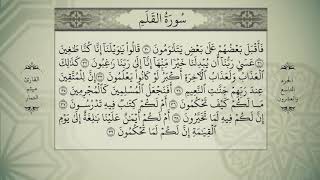 سُورَةُ القَلَمِ
فَأَقْبَلَ بَعْضُهُمْ عَلَىٰ بَعْضٍ يَتَلَاوَمُونَ ٣٠ قَالُوا يَا وَيْلَنَا إِنَّا كُنَّا طَاغِينَ
٣١ عَسَىٰ رَبُّنَا أَن يُبْدِلَنَا خَيْرًا مِّنْهَا إِنَّا إِلَىٰ رَبِّنَا رَاغِبُونَ ٣٢ كَذَٰلِكَ
الْعَذَابُ وَلَعَذَابُ الْآخِرَةِ أَكْبَرُ لَوْ كَانُوا يَعْلَمُونَ ٣٣ إِنَّ لِلْمُتَّقِينَ
عِندَ رَبِّهِمْ جَنَّاتِ النَّعِيمِ ٣٤ أَفَنَجْعَلُ الْمُسْلِمِينَ كَالْمُجْرِمِينَ ٣٥
مَا لَكُمْ كَيْفَ تَحْكُمُونَ ٣٦ أَمْ لَكُمْ كِتَابٌ فِيهِ تَدْرُسُونَ ٣٧
إِنَّ لَكُمْ فِيهِ لَمَا تَخَيَّرُونَ ٣٨ أَمْ لَكُمْ أَيْمَانٌ عَلَيْنَا بَالِغَةٌ إِلَىٰ يَوْمِ
الْقِيَامَةِ إِنَّ لَكُمْ لَمَا تَحْكُمُونَ ٣٩
الجزء
التاسع
والعشرون
القارئ